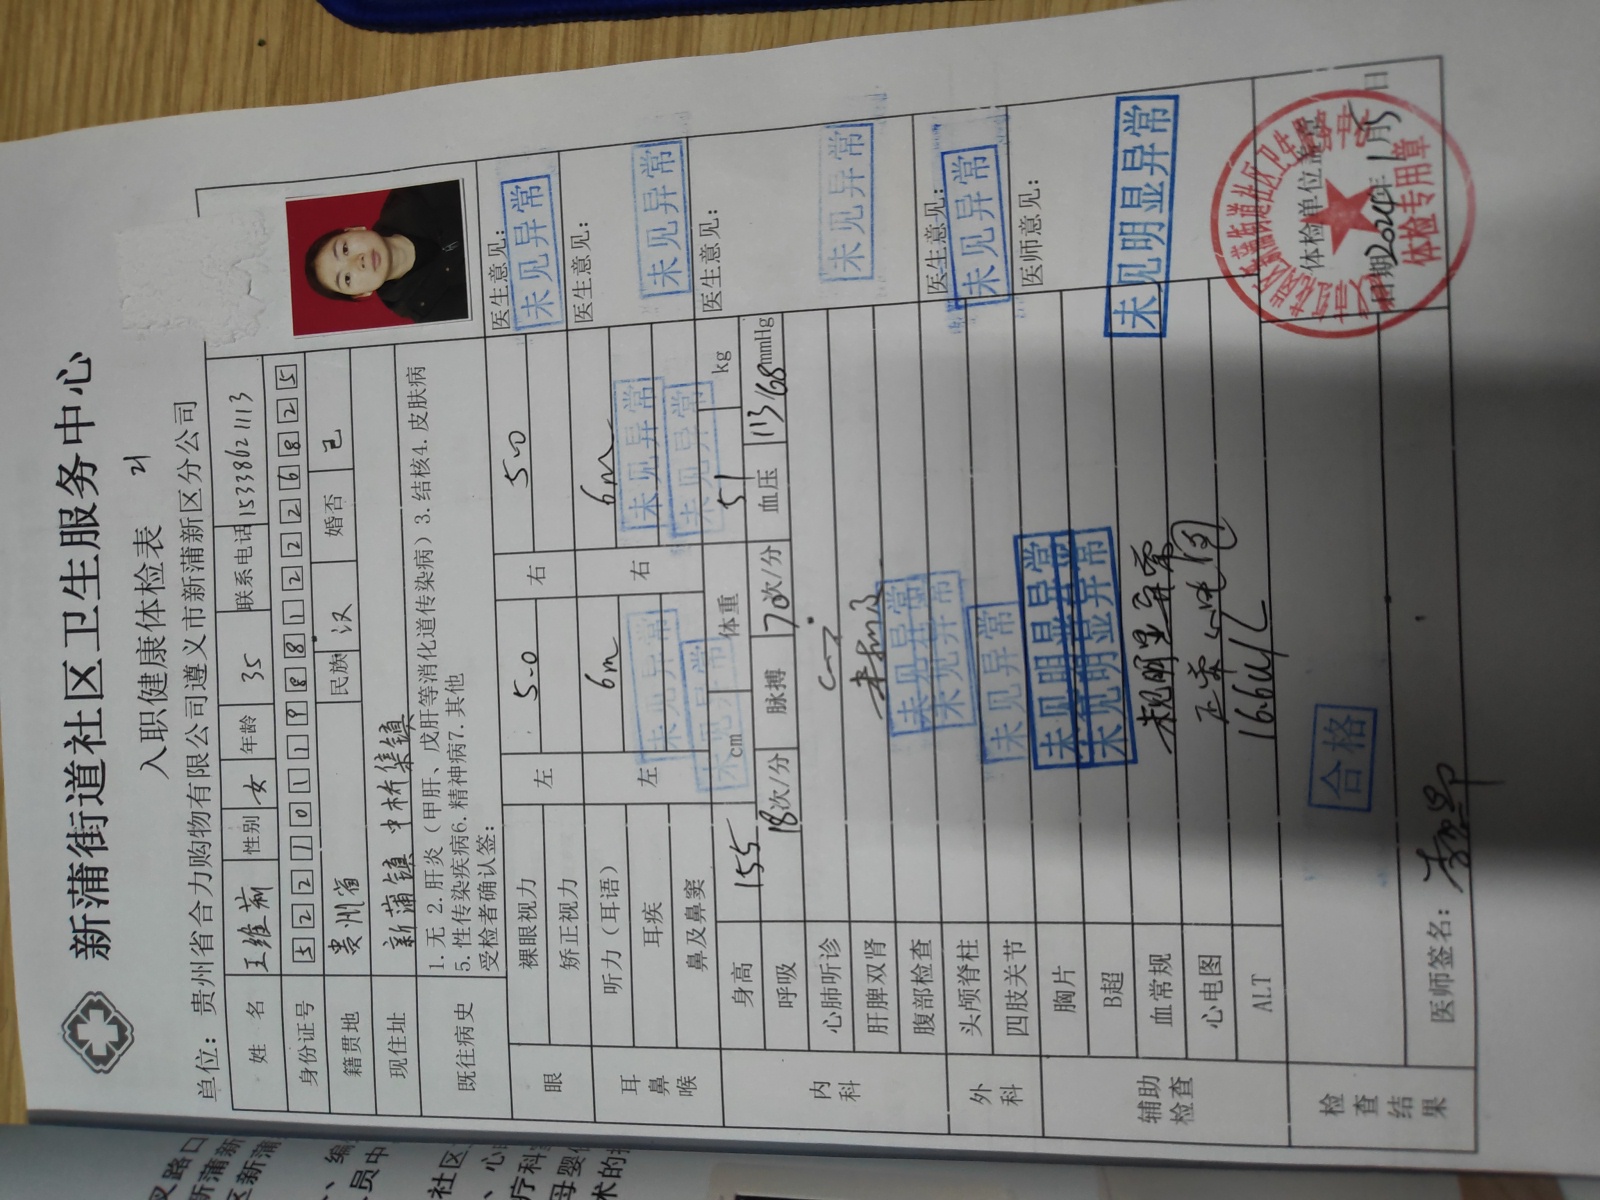 新蒲街道社区卫生服务中心
入职健康体检表
单位：贵州省合力购物有限公司遵义市新蒲新区分公司
姓 名 王维 性别 女 年龄 35 联系电话 15338621113
身份证号 522101198812226825
籍贯地 贵州省 民族 汉 婚否 已
现住址 新蒲镇中桥集镇
既往病史 1. 无 2. 肝炎（甲肝、戊肝等消化道传染病）3. 结核4. 皮肤病
5. 性传染疾病6. 精神病7. 其他
受检者确认签：
眼 裸眼视力 左 5.0 右 5.0 医生意见：
矫正视力 未见异常
耳鼻喉 听力（耳语） 左 6m 右 6m 医生意见：
耳疾 未见异常 未见异常 未见异常
鼻及鼻窦 未见异常 未见异常
内科 身高 155 cm 体重 51 kg 医生意见：
呼吸 18次/分 脉搏 70次/分 血压 113/68mmHg
心肺听诊 未见异常
肝脾双肾
腹部检查 未见异常 未见异常
外科 头颅脊柱 医生意见：
四肢关节 未见异常 未见异常
辅助检查 胸片 未见明显异常 医师意见：
B超 未见明显异常
血常规 未见明显异常 未见明显异常
心电图 正常心电图
ALT 16.6U/L
检查结果 合格 体检单位盖章
日期2024年1月5日
体检专用章
医师签名：
叉路口
新蒲新
区新蒲
员中
社区
、心
疗科
母婴
术的